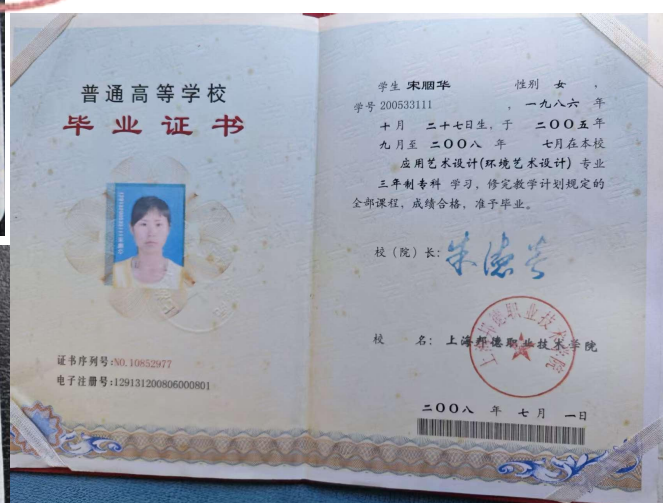 普通高等学校
毕业证书
证书序列号:NO.10852977
电子注册号:129131200806000801
学生 宋胭华 性别 女 ，
学号 200533111 ，一九八六 年
十月 二十七日生，于 二〇〇五年
九月至 二〇〇八 年 七月在本校
应用艺术设计(环境艺术设计) 专业
三年制专科 学习，修完教学计划规定的
全部课程，成绩合格，准予毕业。
校（院）长：
校 名：上海邦德职业技术学院
上海邦德职业技术学院
二〇〇八 年 七月 一日